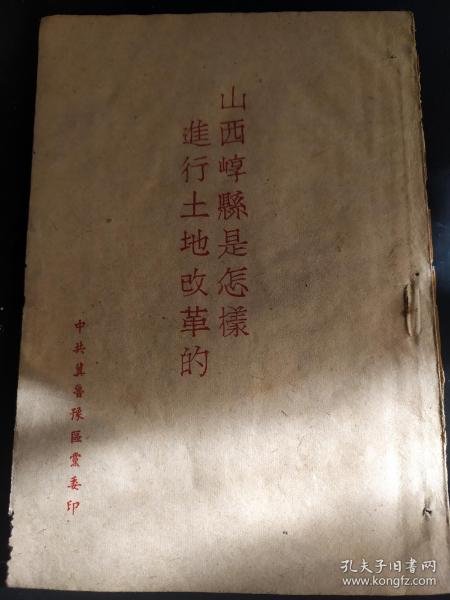 山西崞縣是怎樣
進行土地改革的
中共冀魯豫區黨委印
孔夫子旧书网
www.kongfz.com